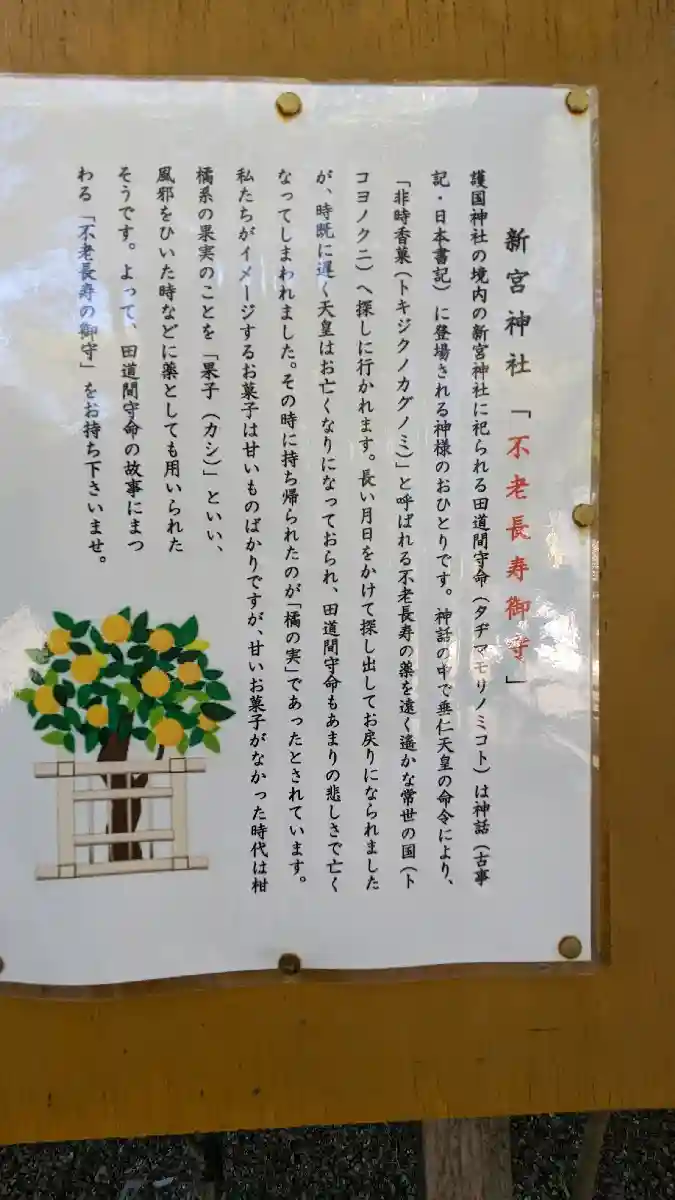 新宮神社「不老長寿御守」
護国神社の境内の新宮神社に祀られる田道間守命（タヂマモリノミコト）は神話（古事
記・日本書記）に登場される神様のおひとりです。神話の中で垂仁天皇の命令により、
「非時香菓（トキジクノカグノミ）」と呼ばれる不老長寿の薬を遠く遙かな常世の国（ト
コヨノクニ）へ探しに行かれます。長い月日をかけて探し出してお戻りになられました
が、時既に遅く天皇はお亡くなりになっておられ、田道間守命もあまりの悲しさで亡く
なってしまわれました。その時に持ち帰られたのが「橘の実」であったとされています。
私たちがイメージするお菓子は甘いものばかりですが、甘いお菓子がなかった時代は柑
橘系の果実のことを「果子（カシ）」といい、
風邪をひいた時などに薬としても用いられた
そうです。よって、田道間守命の故事にまつ
わる「不老長寿の御守」をお持ち下さいませ。